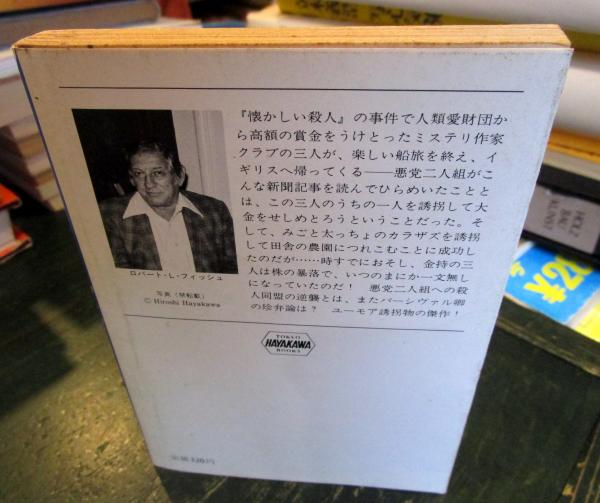 『懐かしい殺人』の事件で人類愛財団か
ら高額の賞金をうけとったミステリ作家
クラブの三人が、楽しい船旅を終え、イ
ギリスへ帰ってくる——悪党二人組がこ
んな新聞記事を読んでひらめいたことと
は、この三人のうちの一人を誘拐して大
金をせしめとろうということだった。そ
して、みごと太っちょのカラザズを誘拐
して田舎の農園につれこむことに成功し
たのだが……時すでにおそし、金持の三
人は株の暴落で、いつのまにか一文無し
になっていたのだ！　悪党二人組への殺
人同盟の逆襲とは、またパーシヴァル卿
の珍弁論は？　ユーモア誘拐物の傑作！
ロバート・L・フィッシュ
写真（禁転載）
© Hiroshi Hayakawa
TOKYO
HAYAKAWA
BOOKS
定価320円
HOLZ
BAU
KUNST